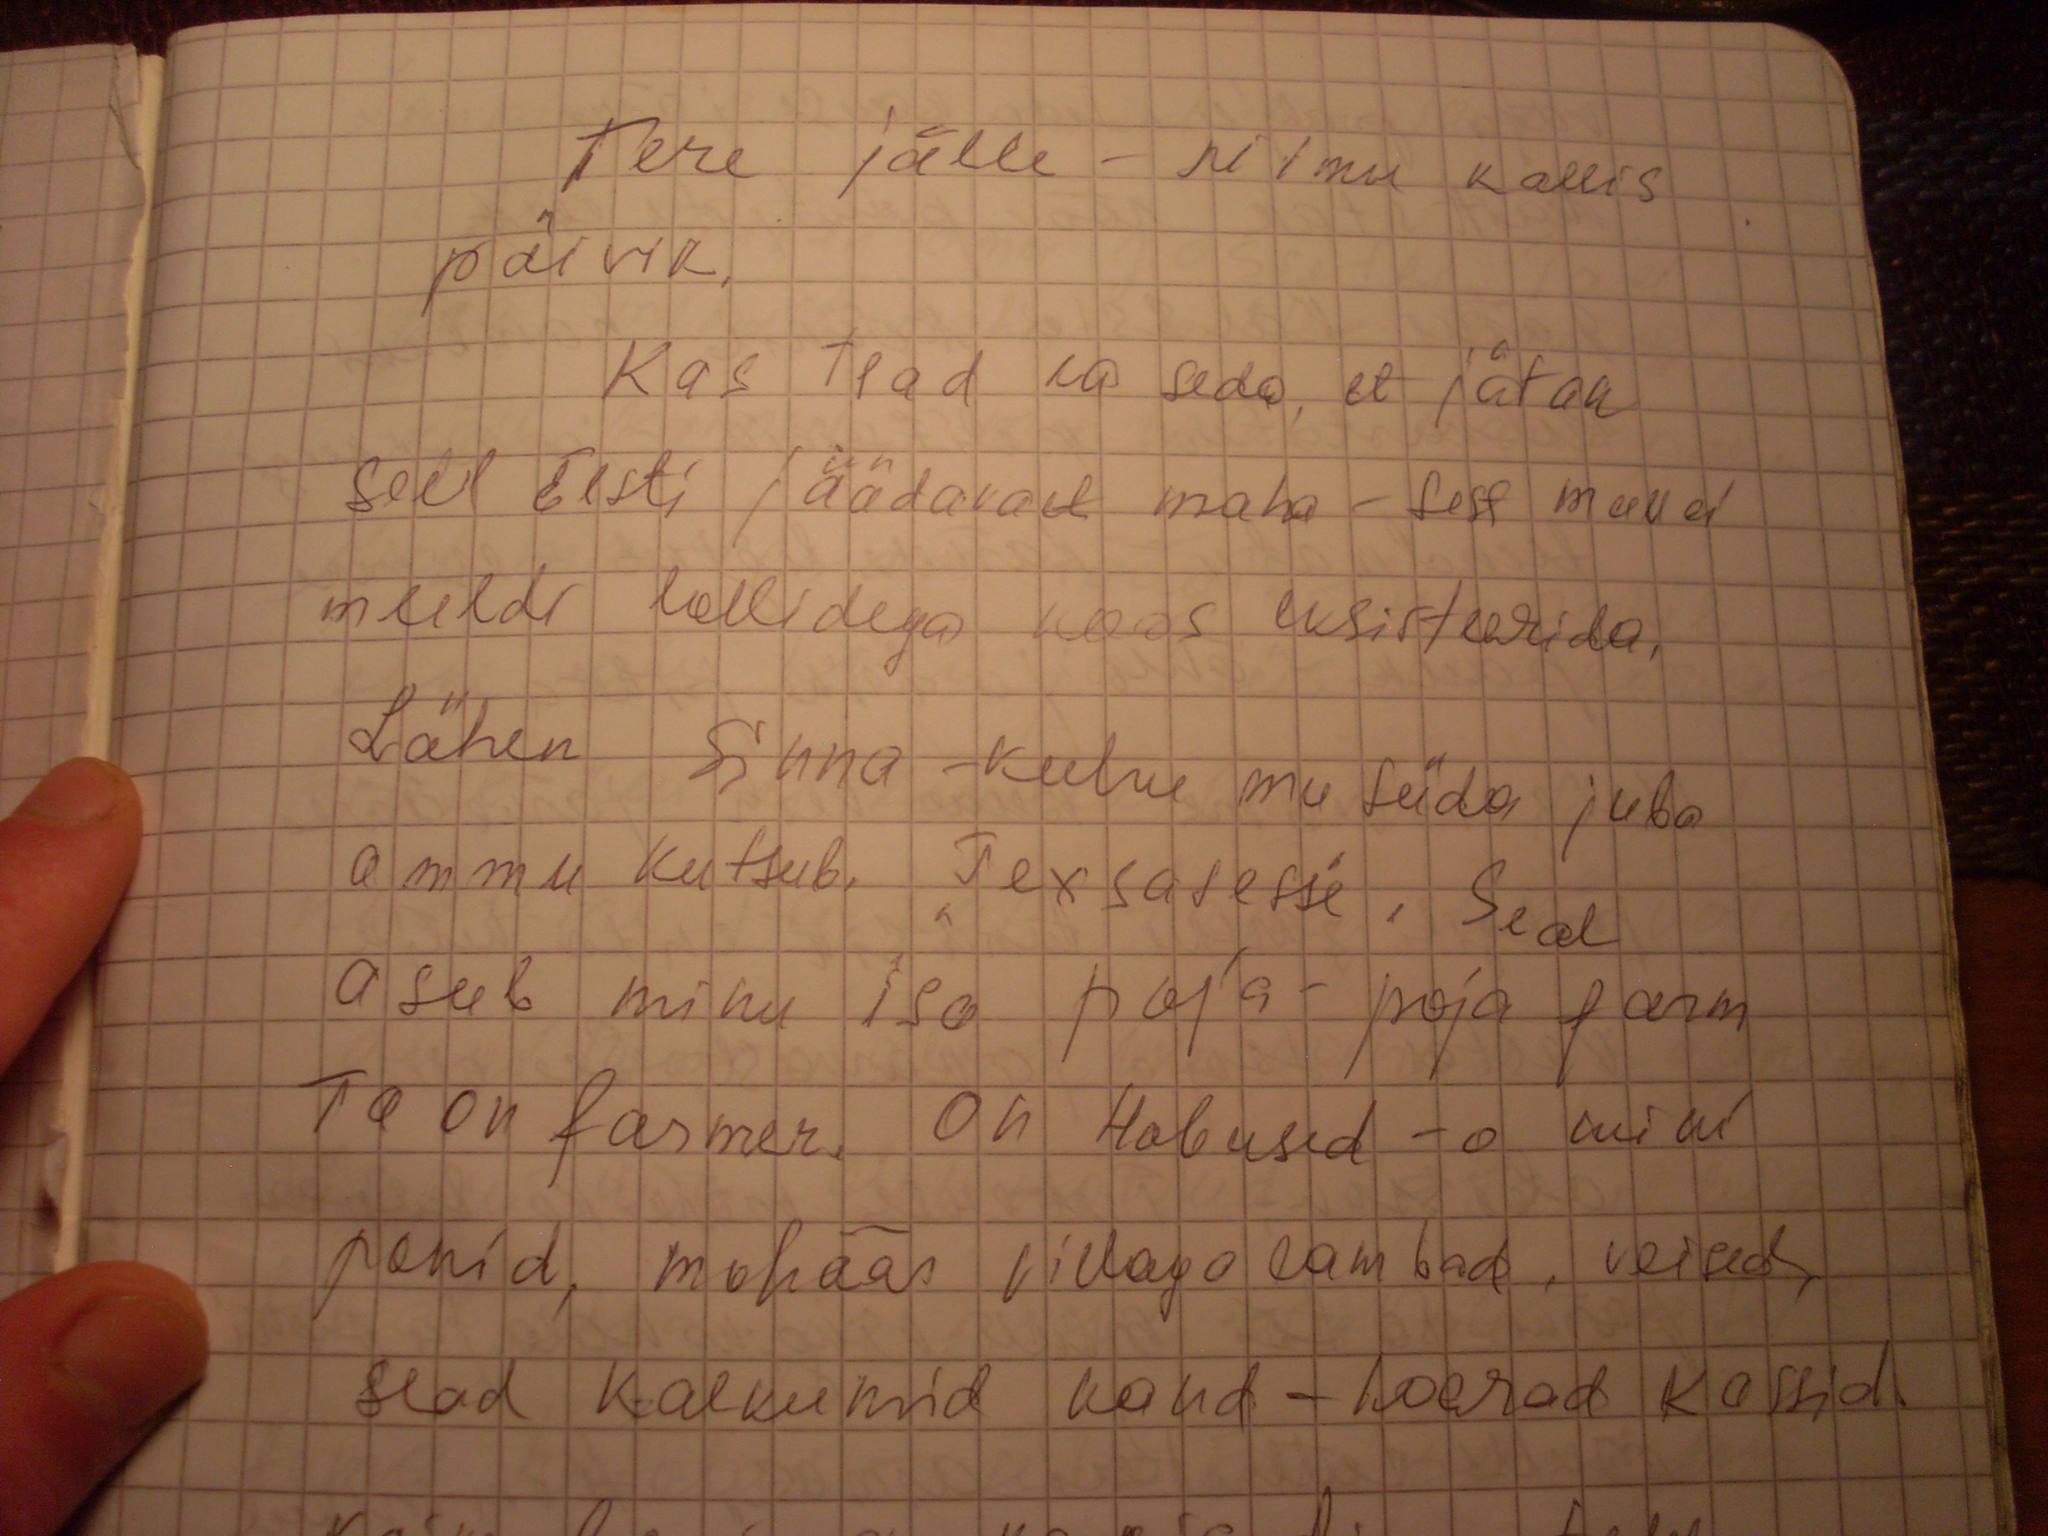 Tere jälle - mu kallis
päivik,
Kas tead ka seda, et jätan
sell Eesti jäädavalt maha - sest mulle ei
meeldi lollidega koos eksisteerida,
Lähen sinna - kuhu mu süda juba
ammu kutsub. Texsasesse, Seal
asub minu iso poja - poja farm
Ta on farmer. On Hobused - a mini
ponid, mohääs villaga lambad, veised,
sead kalkunid kanad - koerad kassid.